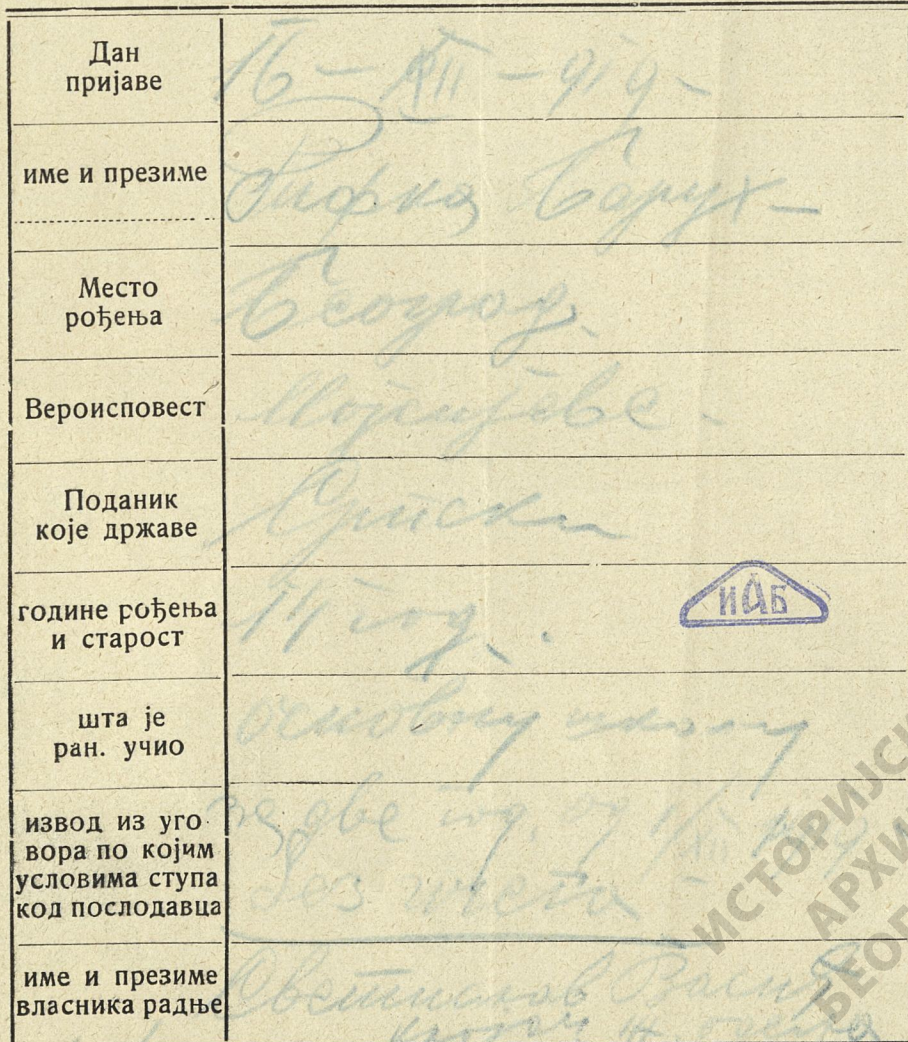 Дан
пријаве
16 - XII - 919 -
име и презиме
Рифка Барух -
Место
рођења
Београд.
Вероисповест
Мојсијеве -
Поданик
које државе
Српски
године рођења
и старост
14 год.
ИАБ
шта је
ран. учио
основну школу
извод из уго
вора по којим
условима ступа
код послодавца
за две год. од
без
име и презиме
власника радње
Светислав Васић
ИСТОРИЈСКИ
АРХИ
БЕОГ